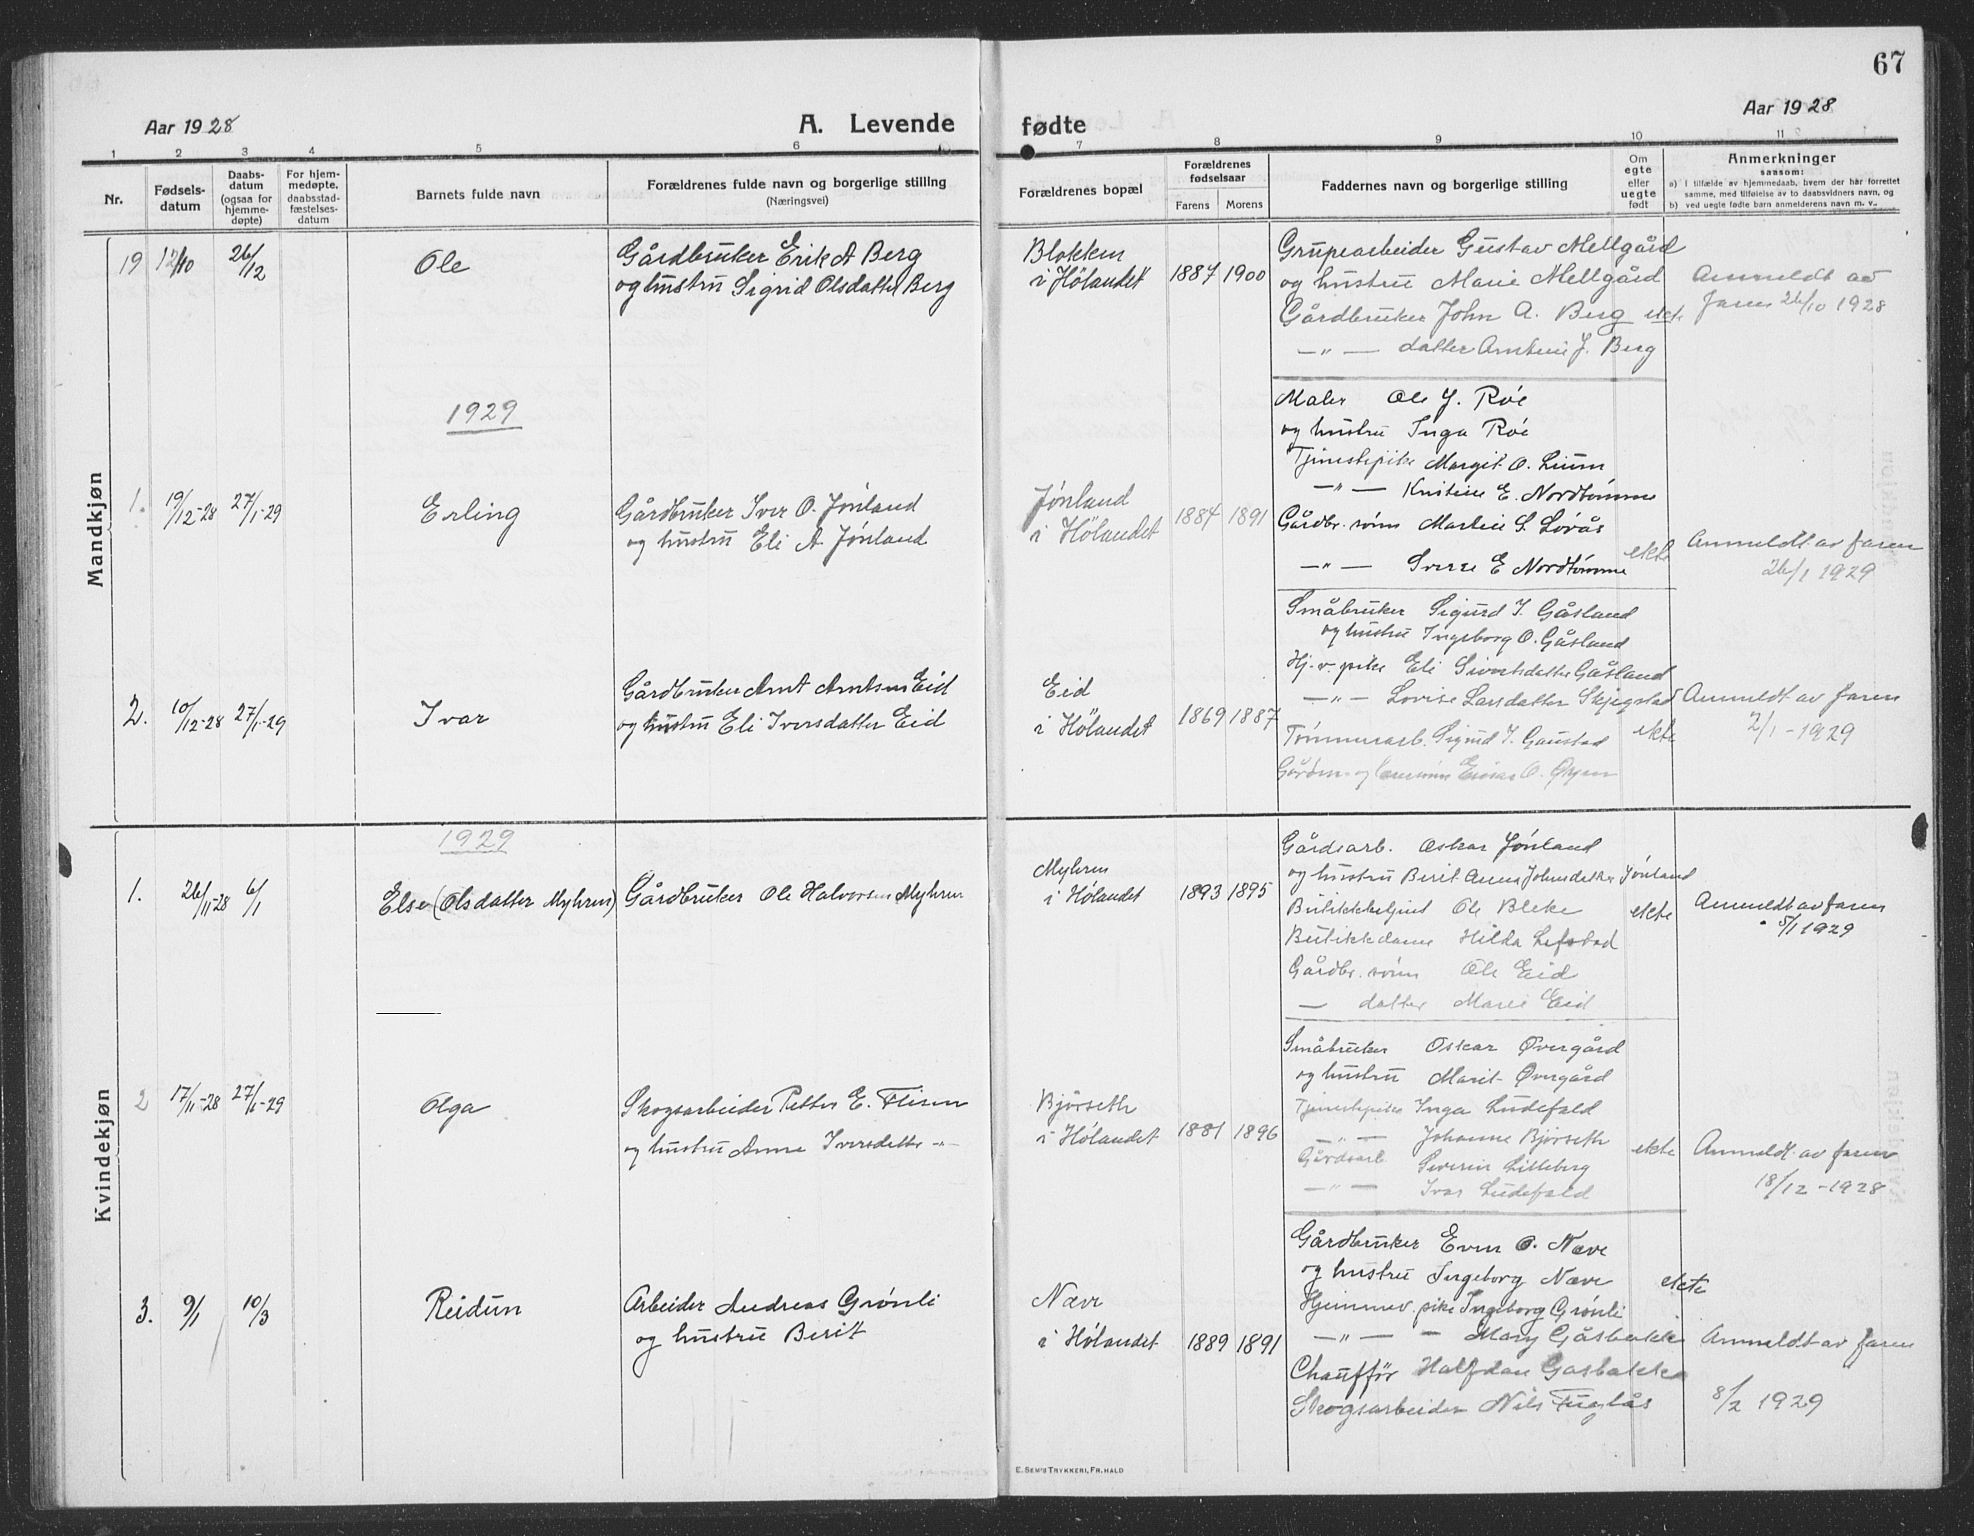 67
Aar 1928
A. Levende
fødte
Aar 1928
1 2 3 4 5 6 7 8 9 10 11
Nr.
Fødsels-
datum
Daabs-
datum
(ogsaa for
hjemme-
døpte)
For hjem-
medøpte.
daabsstad-
fæstelses-
datum
Barnets fulde navn
Forældrenes fulde navn og borgerlige stilling
(Næringsvei)
Forældrenes bopæl
Forældrenes
fødselsaar
Farens Morens
Faddernes navn og borgerlige stilling
Om
egte
eller
uegte
født
Anmerkninger
saasom:
a) I tilfælde av hjemmedaab, hvem der har forrettet
samme, med tilføielse av to daabsvidners navn, og
b) ved uegte fødte barn anmelderens navn m. v..
Mandkjøn
19 12/10 26/12 Ole
Gårdbruker Erik A Berg
og hustru Sigrid Olsdatter Berg
Blokken
i Hölandet
1887 1900
Grupearbeider Gustav Mellgård
og hustru Marie Mellgård
Gårdbruker John A. Berg
—„— datter J. Berg
ekte
Anmeldt av
faren 26/10 1928
1929
1. 19/12-28 27/1-29 Erling
Gårdbruker Iver O. Jønland
og hustru Eli A. Jønland
Jønland
i Hölandet
1884 1891
Maler Ole J. Røe
og hustru Inga Røe
Tjenestepike Margit O. Lium
—„— Kristine E. Nordtømme
Gårdbr. sønn Martin S. Løvås
—„— Sverre E Nordtømme
ekte
Anmeldt av faren
26/1 1929
2. 10/12-28 27/1-29 Ivar
Gårdbruker Arnt Arntsen Eid
og hustru Eli Iversdatter Eid
Eid
i Hölandet
1869 1887
Småbruker Sigurd I. Gåsland
og hustru Ingeborg O. Gåsland
Hj.v. pike Eli Sivertsdatter Gåsland
—„— Lovise Larsdatter Skjegstad
Tømmerarb. Sigurd I. Gaustad
ekte
Anmeldt av faren
2/1-1929
Kvindekjøn
1929
1. 26/11-28 6/1 Else (Olsdatter Myhren)
Gårdbruker Ole Halvorsen Myhren
Myhren
i Hölandet
1893 1895
Gårdsarb. Oskar Jønland
og hustru Berit Anna Johnsdatter Jønland
Butikkbetjent Ole Bleke
Butikkdame Hilda Lefstad
Gårdbr. sønn Ole Eid
— datter Marie Eid
ekte
Anmeldt av faren
5/1 1929
2 17/11-28 27/1-29 Olga
Skogsarbeider Petter E. Flisen
og hustru Anna Iversdatter -„-
Bjørseth
i Hölandet
1881 1896
Småbruker Oskar Øvergård
og hustru Marit Øvergård
Tjenestepike Inga Ludefald
—„— Johanne Bjørseth
Gårdsarb Severin Litleberg
—„— Ivar Ludefald
ekte
Anmeldt av faren
18/12-1928
3. 9/1 10/3 Reidun
Arbeider Andreas Grønli
og hustru Berit
Næve
i Hölandet
1889 1891
Gårdbruker Even O. Næve
og hustru Ingeborg Næve
Hjemmev. pike Ingeborg Grønli
—„— — Mary Gåsbakke
Chauffør Halfdan Gasbakke
Skogsarbeider Nils Fuglås
ekte
Anmeldt av faren
8/2 1929
E. SEM'S TRYKKERI, FR. HALD